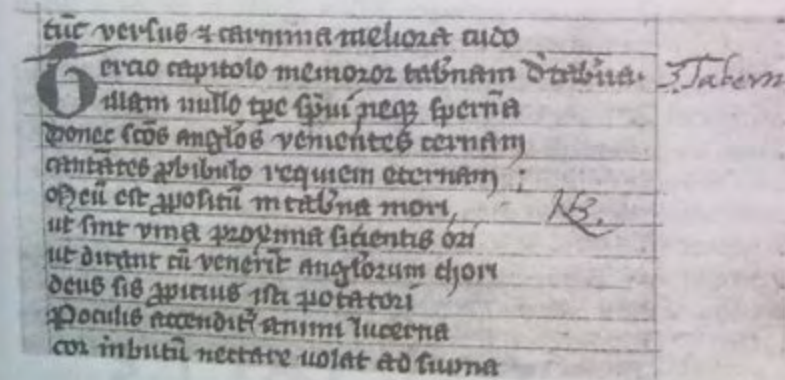 tūc versus ⁊ carmina meliora cudo
Tercio capitolo memoror tab̄nam D̄ tab̄na. 3. Tabern
illam nullo tp̄e sp̄ui neqꝫ sperna
donec sc̄os anglos venientes cernam
cantātes ꝓ bibulo requiem eternam ;
Meū est ꝓpositū in tab̄na mori, NB.
ut sint vina proxima sicientis ori
ut dicant cū venerīt anglorum chori
deus sis ꝓpicius isti potatori
Poculis accendit᷑ animi lucerna
cor inbutū nectare uolat ad sup̄na